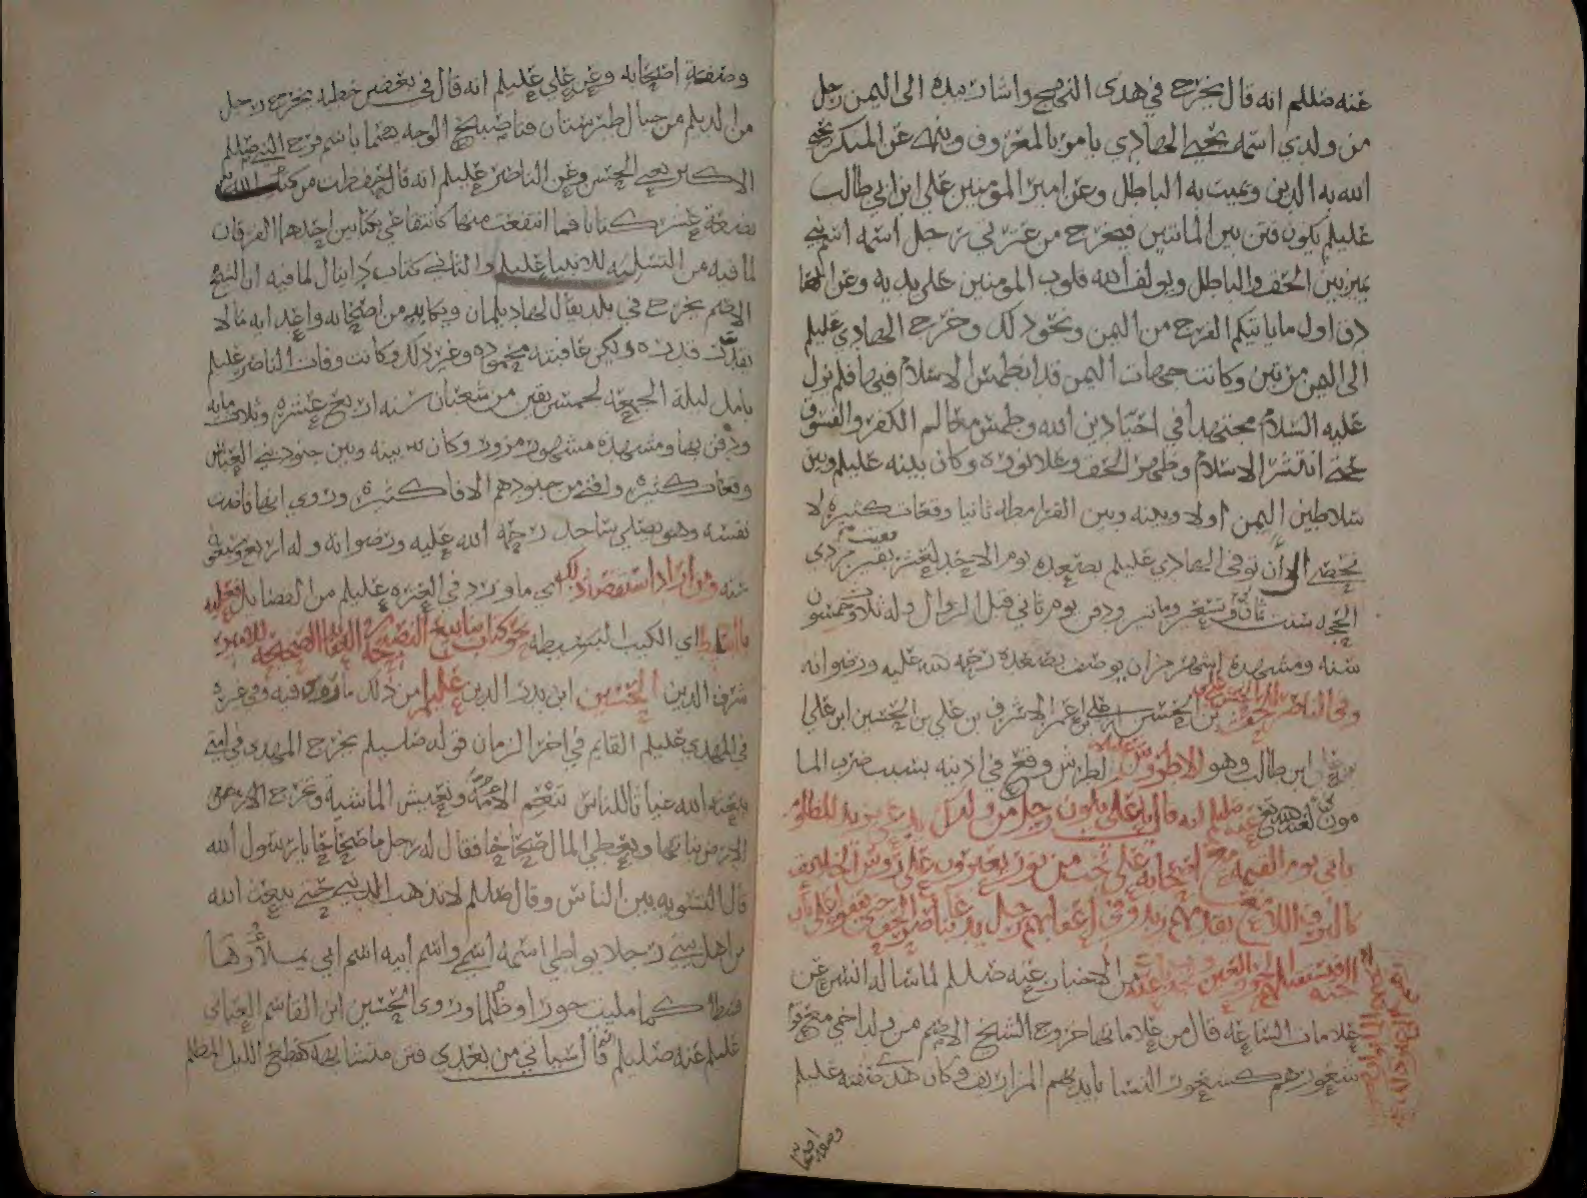 عنه صللم انه قال يخرج في هذى النهج واشار بيده الى اليمن رجل
من ولدي اسمه يحيى الهادي يامر بالمعروف وينهى عن المنكر يحيي
الله به الدين ويميت به الباطل وعن امير المؤمنين علي ابن ابي طالب
عليلم يكون فتن بين الماتين فيخرج من عترتي رجل اسمه اسم نبي
يميز بين الحق والباطل ويولف الله قلوب المومنين على يديه وعن الصا
دق اول ما ياتيكم الفرج من اليمن ونحو ذلك وخرج الهادي عليلم
الى اليمن مرتين وكانت جهات اليمن قد انطمس الاسلام فيها فلم يزل
عليه السلام مجتهدا في احيا دين الله وطمس معالم الكفر والفسوق
حتى انتشر الاسلام وظهر الحق وعلا نوره وكان بينه عليلم وبين
سلاطين اليمن اولا وبينه وبين القرامطه ثانيا وقعات كثيره لا
تحصى الى أن توفى الهادي عليلم بصعده يوم الاحد لعشر بقين من ذي
الحجه سنت ثمان وتسعين وماتين ودفن يوم ثاني قبل الزوال وله ثلاث وخمسون
سنه ومشهده اشهر مزار يوصف بصعده رحمه الله عليه ورضوانه
وفى الناصر للحق الحسن بن علي بن الحسن ابن علي بن عمر الاشرف بن علي بن الحسين ابن علي
ابن طالب وهو الاطروش عليلم لطرش وقع في اذنيه بسبب ضرب الما
مون لعنه الله عنه صللم انه قال يا علي يكون رجل من ولدك يدعى بزيد المظلوم
ياتي يوم القيمه مع اصحابه على نجب من نور يعبرون على رؤس الخلايق
كالبرق اللامع يقدمهم زيد وفي اعقابهم رجل يدعا بناصر الحق حتى يقفوا على باب
الجنه فتستقبلهم الحور العين من الاخبار عنه صللم لما ساله انس عن
علامات الساعه قال من علاماتها خروج الشيخ الاصم من ولد اخي مع قوم
شعورهم كشعور النسا بايديهم المزاريق وكان هذى صفته عليلم
وصفة اصحابه
وصفة اصحابه وعن علي عليلم انه قال في بعض خطبه يخرج رجل
من الديلم من جبال طبرستان فتا صبيح الوجه يسما باسم فرخ النبي صللم
الاكبر يعني الحسن وعن الناصر عليلم انه قال حفظت من كتب الله
بضعة عشر كتابا فما انتفعت منها كانتفاعي بكتابين احدهما الفرقان
لما فيه من التسليه للانبيا عليلم والثاني كتاب دانيال لما فيه ان الشيخ
الاصم يخرج في بلد يقال لها ديلمان ويكابد من اصحابه واعدايه ما لا
يقدر قدره ولكن عاقبته محموده وغير ذلك وكانت وفات الناصر عليلم
بامل ليلة الجمعه لخمس بقين من شعبان سنه اربع وثلاث مايه
ودفن بها ومشهده مشهور مزور وكان بينه وبين جنود بني العباس
وقعات كثيره وافنى من جنودهم الافا كثيره وروي انها فاضت
نفسه وهو يصلي ساجد رحمه الله عليه ورضوانه وله اربع وسبعون
سنه ومن اراد استقصا ذلك اي ما ورد في العتره عليلم من الفضايل فعليه
بالبسايط اي الكتب البسيطه نحو كتاب ينابيع النصيحه للامير
شرف الدين الحسين ابن بدر الدين عليلم من ذلك ما روى فيه وفي غيره
في المهدي عليلم القايم في اخر الزمان قوله صلىلم يخرج المهدي في امتي
يبعثه الله غياثا للناس تنعم الامة وتعيش الماشية وتخرج الارض
الارض نباتها ويعطي المال صحاحا فقال له رجل ما صحاحا يا رسول الله
قال السويه بين الناس وقال صللم لا تذهب الدنيا حتى يبعث الله
من اهل بيتي رجلا يواطي اسمه اسمي واسم ابيه اسم ابي يملأها
قسطا كما مليت جورا وظلما وروى الحسين ابن القاسم العياني
عليلم عنه صلىلم قال سياتي من بعدي فتن متشابهه كقطع الليل المظلم